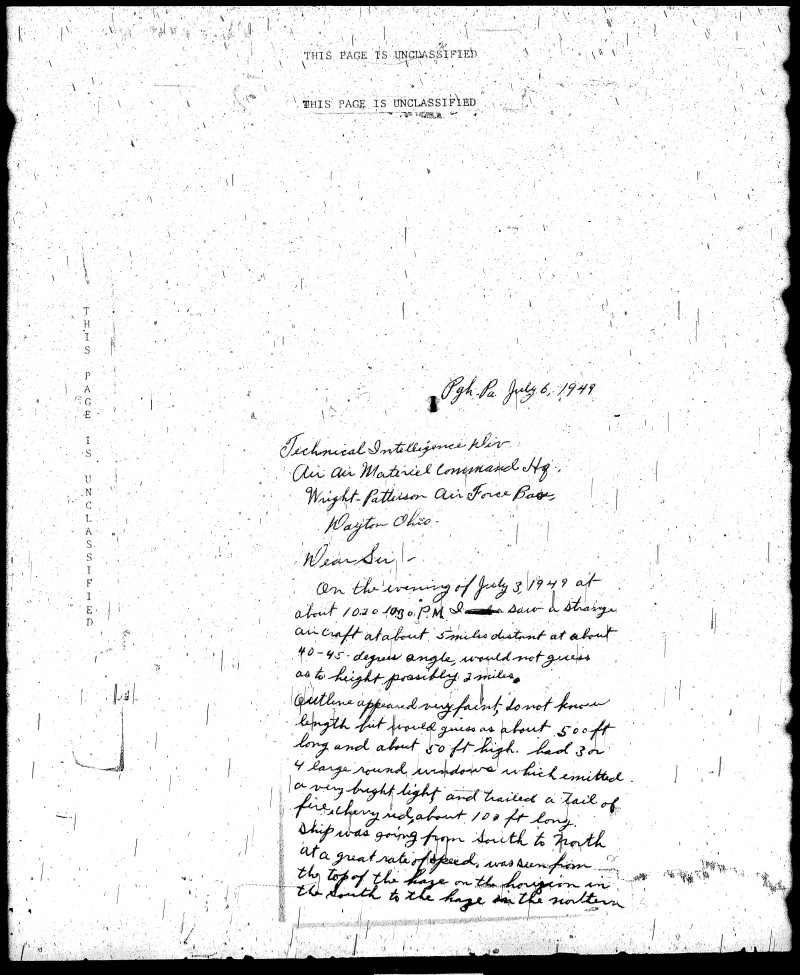 THIS PAGE IS UNCLASSIFIED
THIS PAGE IS UNCLASSIFIED
THIS PAGE IS UNCLASSIFIED
Pgh. Pa July 6, 1949
Technical Intelligence Div
Air Air Materiel Command Hq.
Wright-Patterson Air Force Base,
Dayton Ohio.
Dear Sir, -
On the evening of July 3, 1949 at
about 1020 1030 P.M. I saw a strange
aircraft at about 5 miles distant at about
40-45 degrees angle, would not guess
as to height possibly 2 miles.
Outline appeared very faint, do not know
length but would guess as about 500 ft
long and about 50 ft high. had 3 or
4 large round windows which emitted
a very bright light, and trailed a tail of
fire, cherry red, about 100 ft long
Ship was going from South to North
at a great rate of speed, was seen from
the top of the haze on the horizon in
the South to the haze in the northern